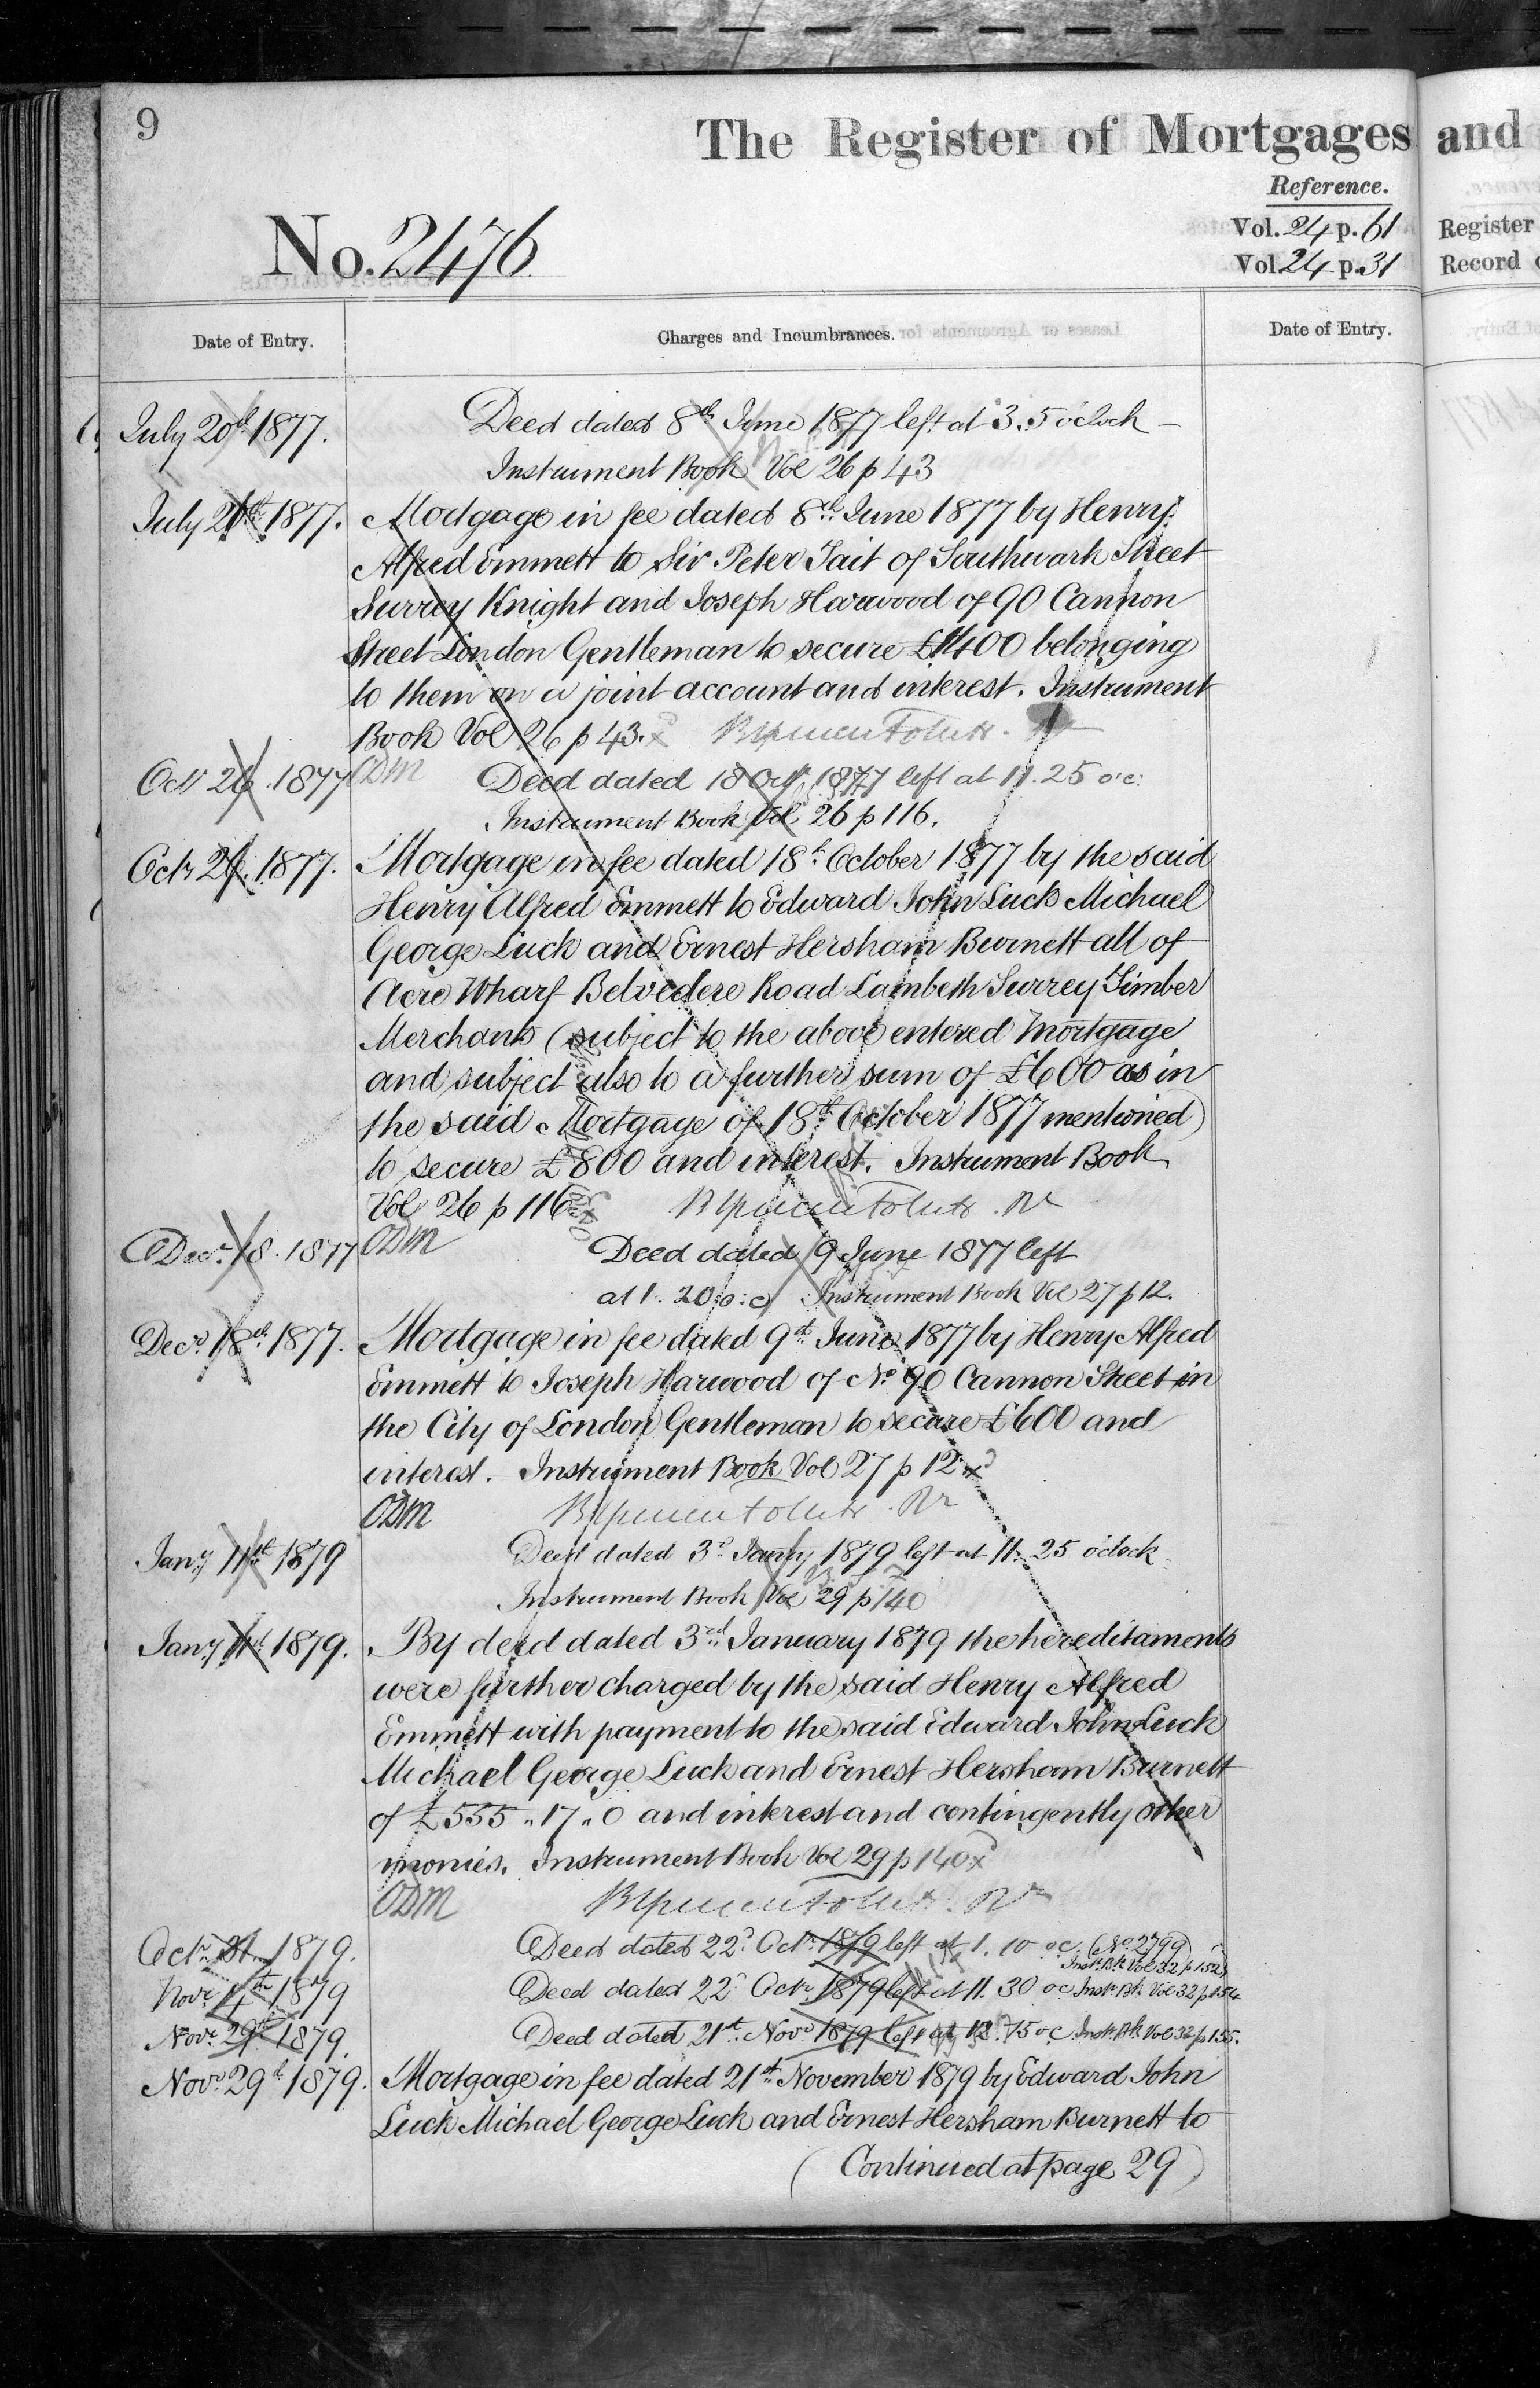 9
The Register of Mortgages and
Reference.
No. 2476
Vol. 24 p. 61
Register
Vol. 24 p. 31
Record
Date of Entry.
Charges and Incumbrances.
Date of Entry.
July 20th 1877.
Deed dated 8th June 1877 left at 3.5 o'clock
Instrument Book Vol 26 p 43
July 20th 1877.
Mortgage in fee dated 8th June 1877 by Henry
Alfred Emmett to Sir Peter Tait of Southwark Street
Surrey Knight and Joseph Harwood of 90 Cannon
Street London Gentleman to secure £1400 belonging
to them on a joint account and interest. Instrument
Book Vol 26 p 43.
Octr 26. 1877
ODM
Deed dated 18 Octr 1877 left at 11.25 o:c:
Instrument Book Vol 26 p 116.
Octr 26. 1877.
Mortgage in fee dated 18th October 1877 by the said
Henry Alfred Emmett to Edward John Luck Michael
George Luck and Ernest Hersham Burnett all of
Acre Wharf Belvedere Road Lambeth Surrey Timber
Merchants (subject to the above entered Mortgage
and subject also to a further sum of £600 as in
the said Mortgage of 18th October 1877 mentioned)
to secure £800 and interest. Instrument Book
Vol 26 p 116
Decr 18. 1877
ODM
Deed dated 9 June 1877 left
at 1.20 o:c Instrument Book Vol 27 p 12.
Decr 18th 1877.
Mortgage in fee dated 9th June 1877 by Henry Alfred
Emmett to Joseph Harwood of No 90 Cannon Street in
the City of London Gentleman to secure £600 and
interest. Instrument Book Vol 27 p 12
ODM
Jany 11th 1879
Deed dated 3d Jany 1879 left at 11.25 o'clock
Instrument Book Vol 29 p 140
Jany 11th 1879.
By deed dated 3rd January 1879 the hereditaments
were further charged by the said Henry Alfred
Emmett with payment to the said Edward John Luck
Michael George Luck and Ernest Hersham Burnett
of £555 " 17 " 0 and interest and contingently other
monies. Instrument Book Vol 29 p 140
ODM
Octr 31. 1879.
Deed dated 22d Octr 1879 left at 1.10 oc. (No 2799)
Instr. Bk. Vol 32 p 152
Novr 4th 1879
Deed dated 22d Octr 1879 left at 11.30 oc Instr. Bk. Vol 32 p 154
Novr 29th 1879.
Deed dated 21st Novr 1879 left at 12.15 oc Instr. Bk. Vol 32 p 155.
Novr 29th 1879.
Mortgage in fee dated 21st November 1879 by Edward John
Luck Michael George Luck and Ernest Hersham Burnett to
(Continued at page 29)